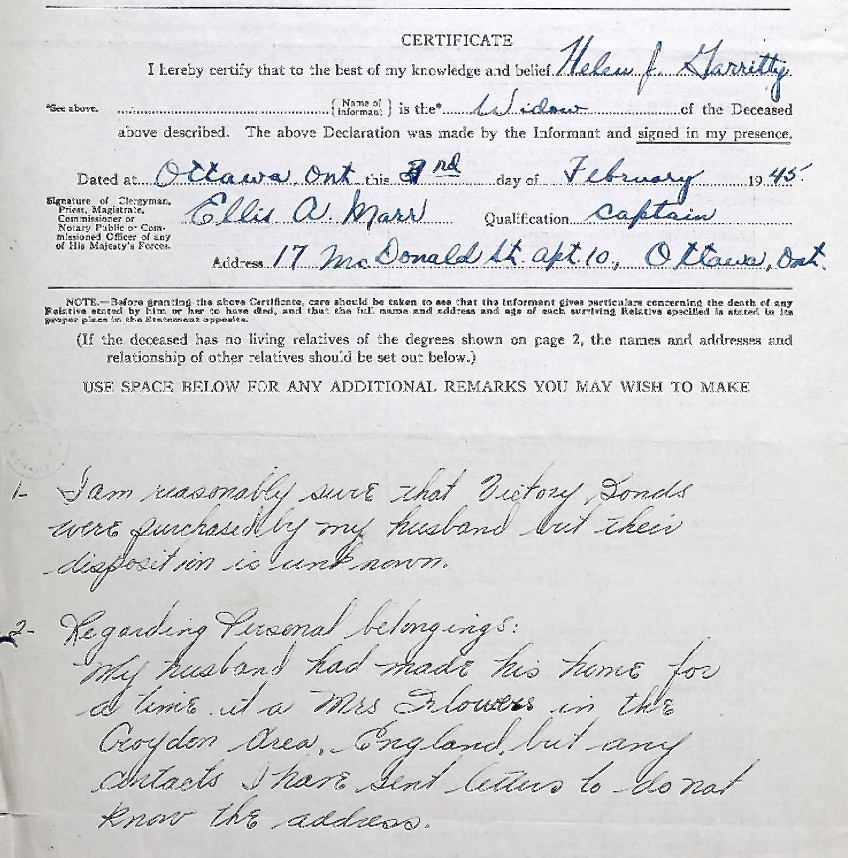 CERTIFICATE
I hereby certify that to the best of my knowledge and belief Helen J. Garritty
*See above. { Name of Informant } is the* Widow of the Deceased
above described. The above Declaration was made by the Informant and signed in my presence.
Dated at Ottawa, Ont this 3rd day of February 1945
Signature of Clergyman,
Priest, Magistrate,
Commissioner or
Notary Public or Com-
missioned Officer of any
of His Majesty's Forces.
Ellis A. Marr Qualification Captain
Address 17 McDonald St. apt. 10., Ottawa, Ont.
NOTE.—Before granting the above Certificate, care should be taken to see that the Informant gives particulars concerning the death of any
Relative stated by him or her to have died, and that the full name and address and age of each surviving Relative specified is stated in its
proper place in the Statement opposite.
(If the deceased has no living relatives of the degrees shown on page 2, the names and addresses and
relationship of other relatives should be set out below.)
USE SPACE BELOW FOR ANY ADDITIONAL REMARKS YOU MAY WISH TO MAKE
1- I am reasonably sure that Victory Bonds
were purchased by my husband but their
disposition is unknown.
2- Regarding Personal belongings:
My husband had made his home for
a time at a Mrs Flowers in the
Croydon Area, England, but any
contacts I have sent letters to do not
know the address.